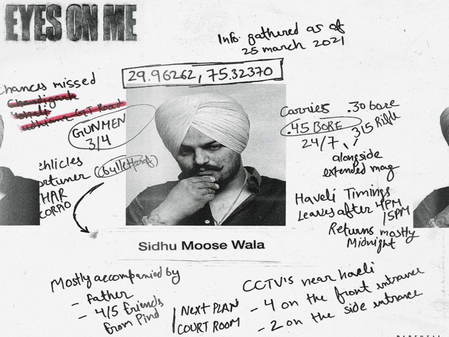 EYES ON ME
Info gathered as of
25 march 2021
29.96262, 75.32370
chances missed
Chandigarh
GT Road
GUNMEN
3/4
Bulletproof
Carries .30 bore
.45 BORE
315 Rifle
24/7
alongside
extended mag
Haveli Timings
Leaves after 4PM
/5PM
Returns mostly
Midnight
Sidhu Moose Wala
Mostly accompanied by
- Father
- 4/5 friends
from Pind
NEXT PLAN
COURT ROOM
CCTV's near haveli
- 4 on the front entrance
- 2 on the side entrance